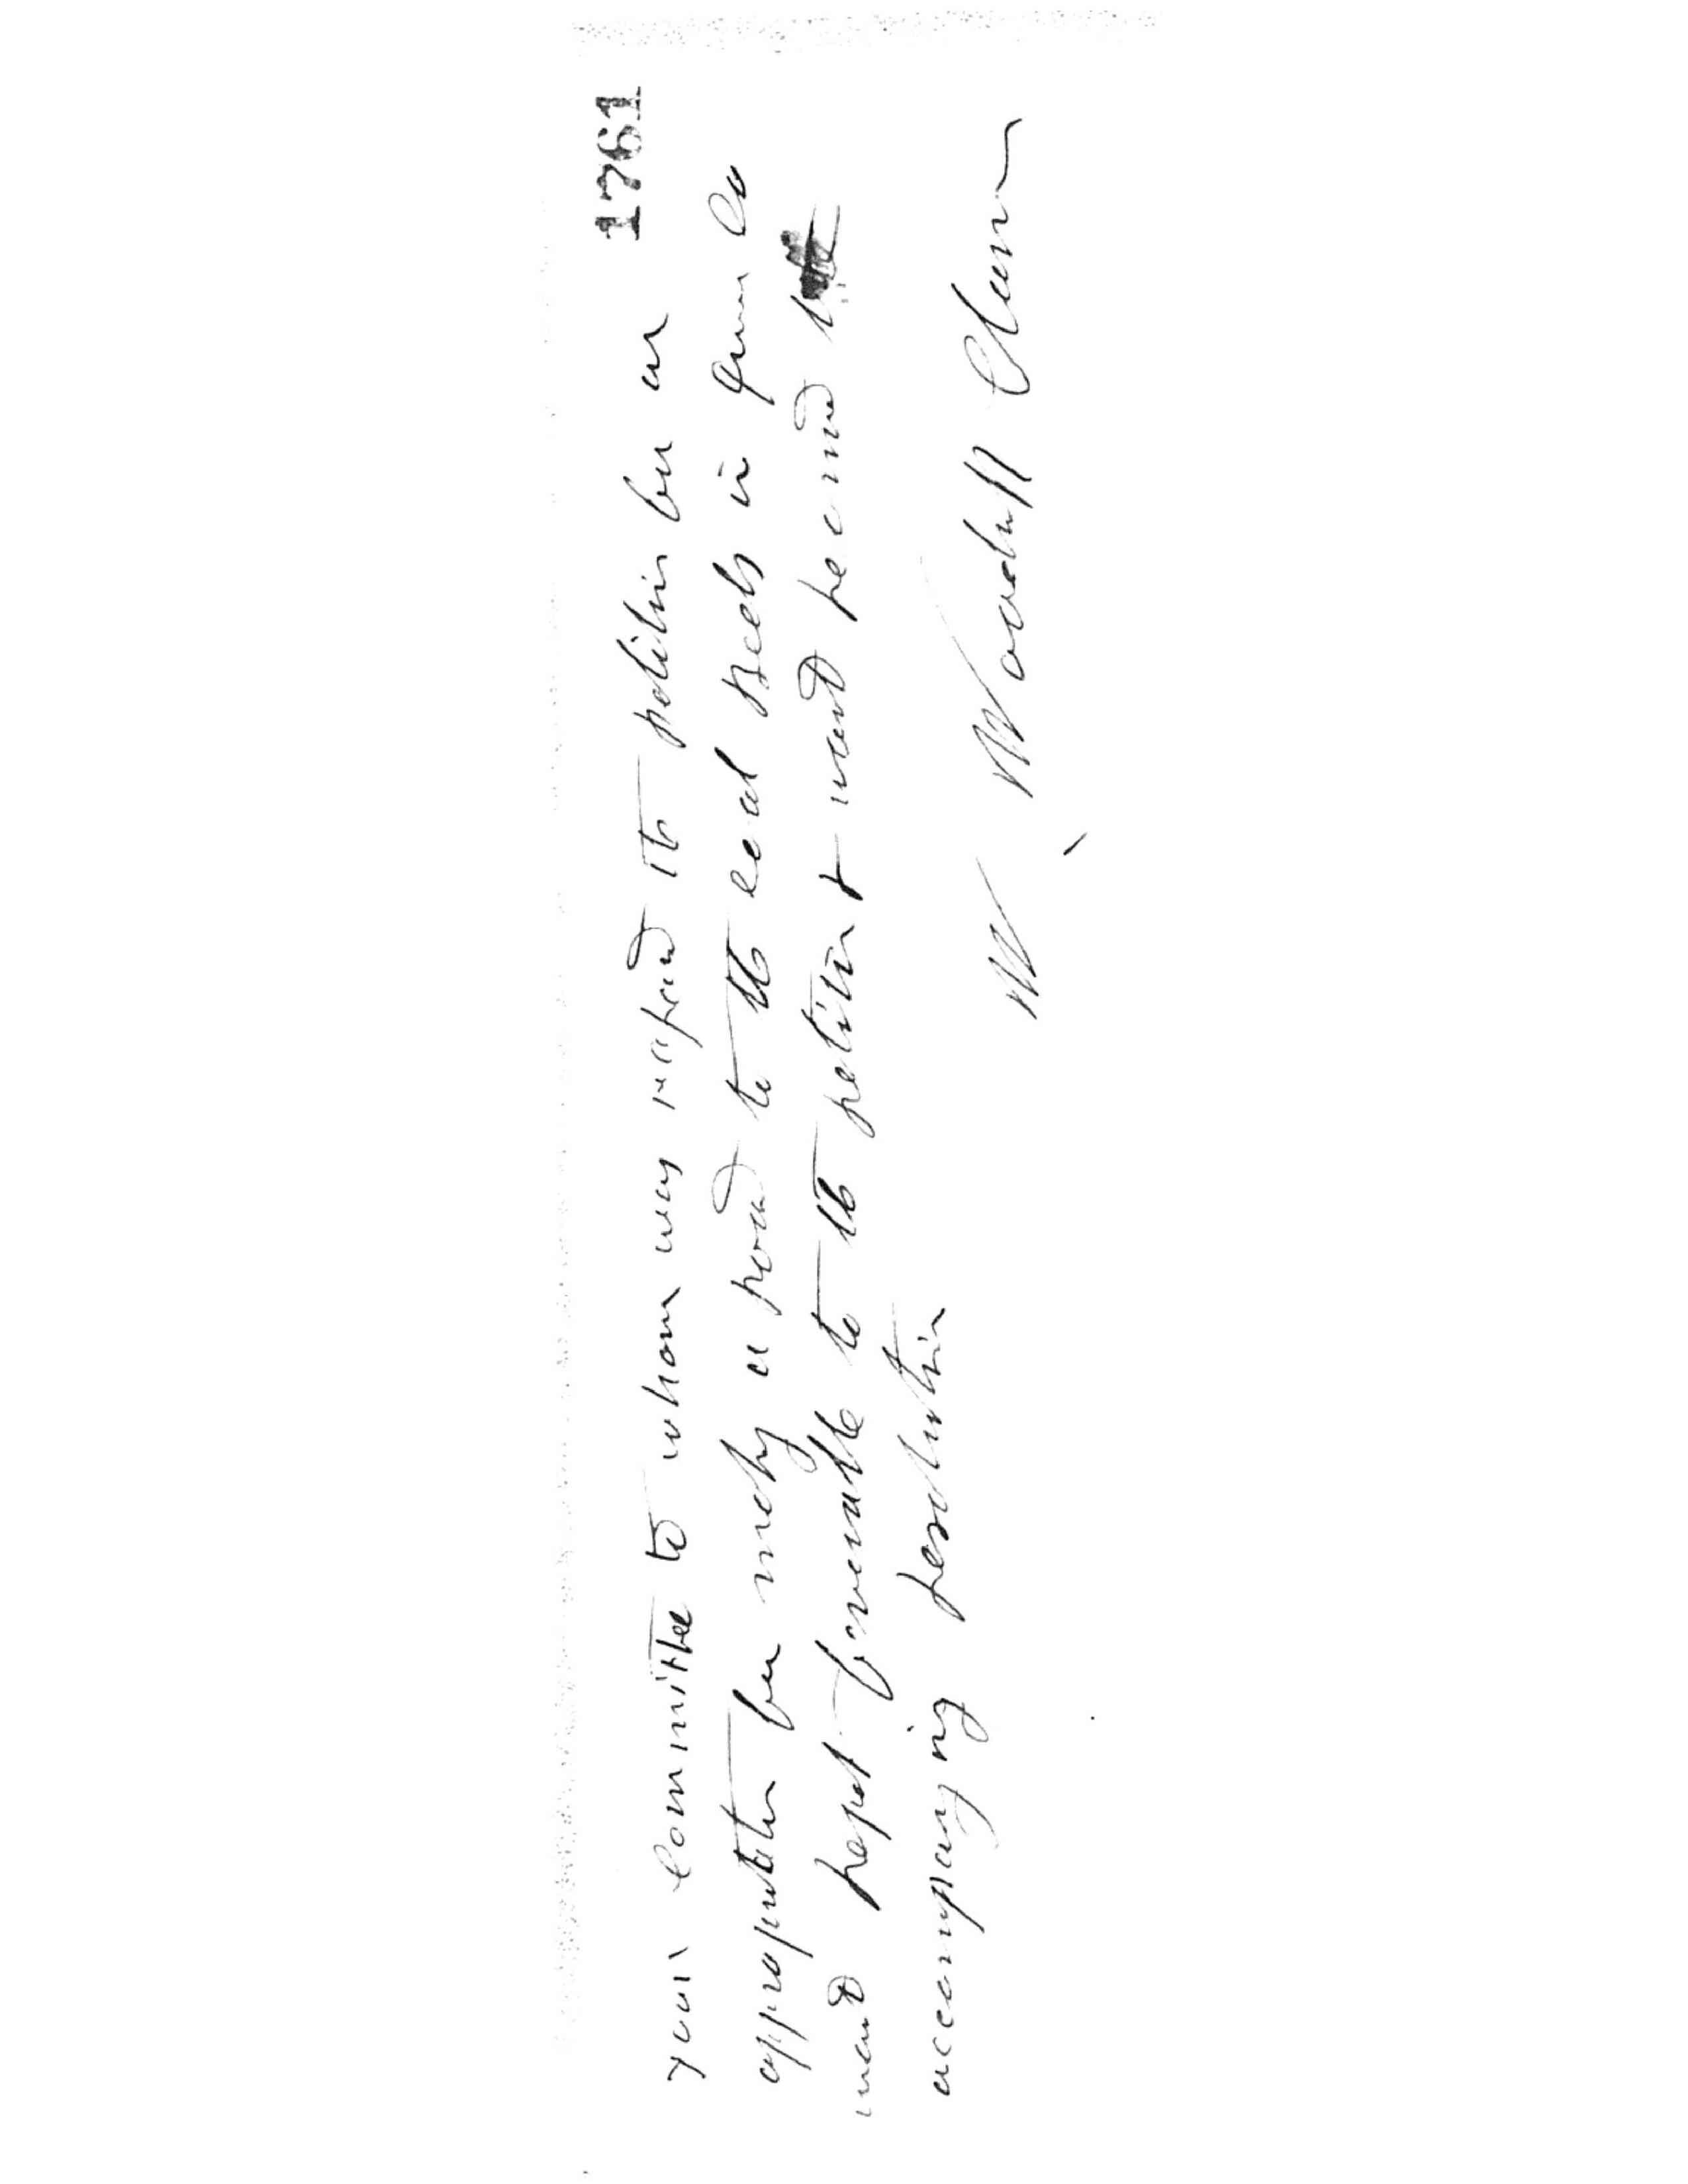 1761
your Committee to whom was referred the petition for an
appropriation for making a road to the coal beds in Green Co
would report favorable to the petition & would recommend the
accompanying resolution
W. Woodruff Chmn